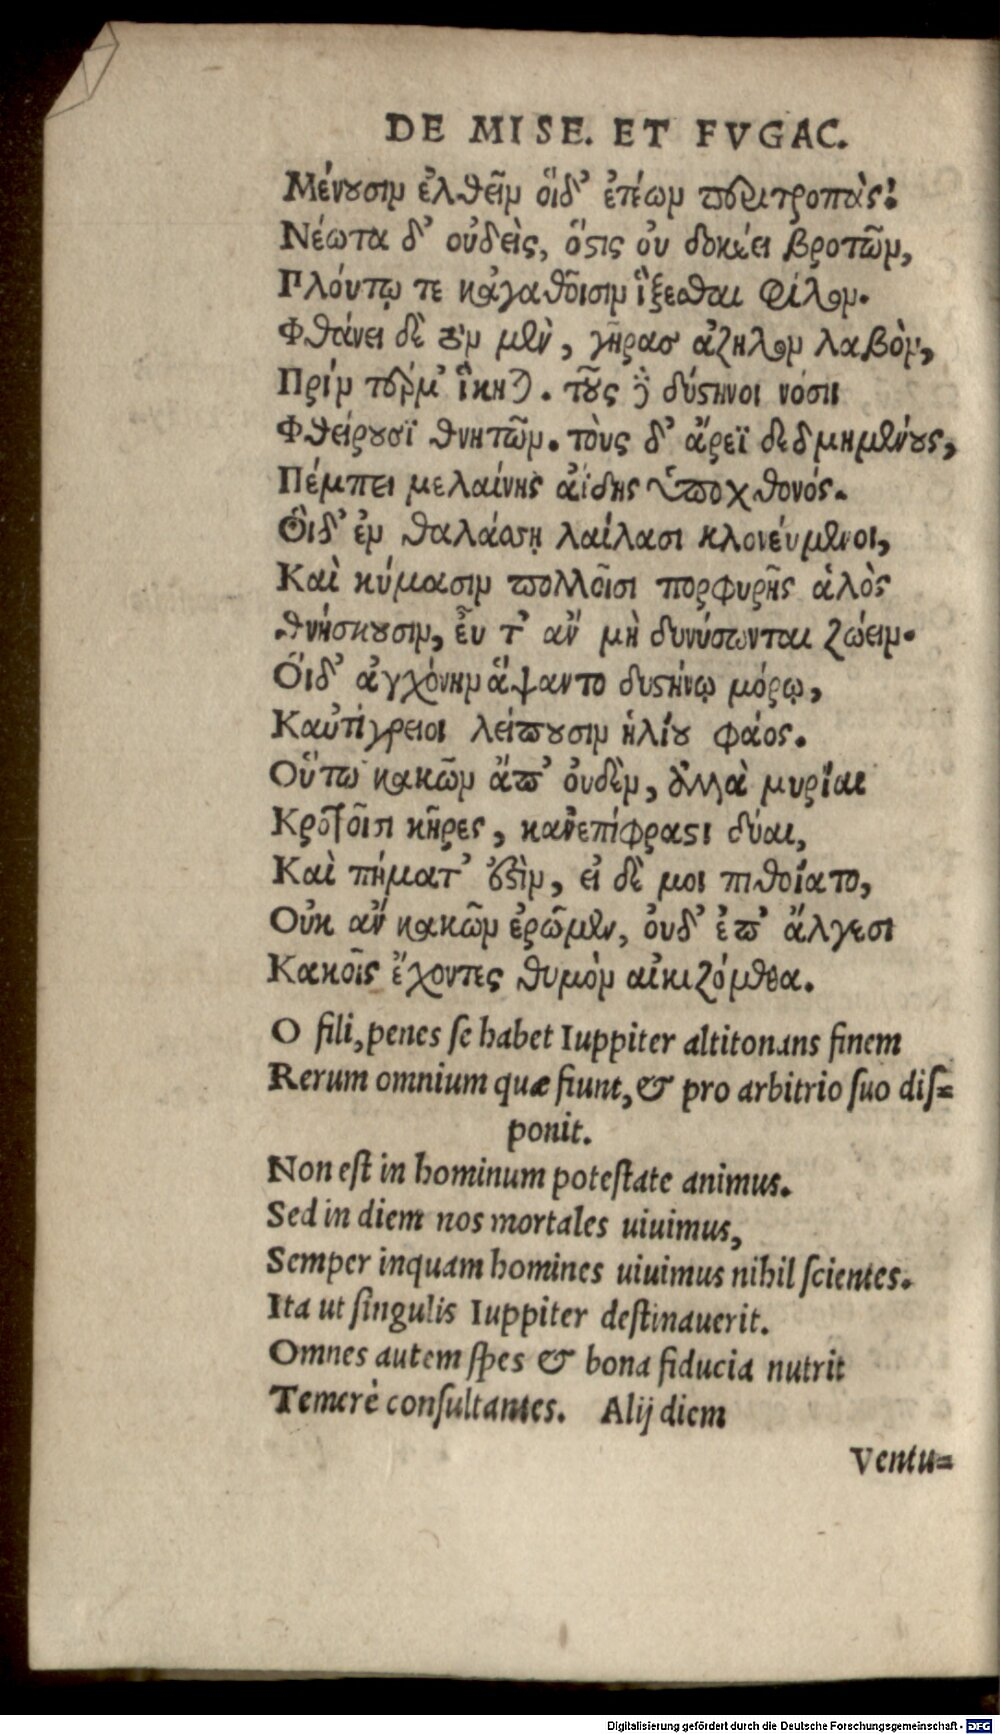 DE MISE. ET FVGAC.
Μένουσιν ἐλθεῖν, οἵδ' ἐτέων περιτροπάς!
Νέωτα δ' οὐδεὶς, ὅστις οὐ δοκέει βροτῶν,
Πλούτῳ τε κᾀγαθοῖσιν ἵξεσθαι φίλον.
Φθάνει δὲ τὸν μὲν, γῆρας ἄζηλον λαβὸν,
Πρὶν τέρμ' ἵκηται. τοὺς δὲ δύστηνοι νόσοι
Φθείρουσϊ θνητῶν. τοὺς δ' ἄρεϊ δεδμημένους,
Πέμπει μελαίνης ἀΐδης ὑπο χθονός.
Οἵδ' ἐν θαλάσσῃ λαίλασι κλονεύμενοι,
Καὶ κύμασιν πολλοῖσι πορφυρῆς ἁλὸς
θνήσκουσιν, εὖ τ' ἂν μὴ δυνύσωνται ζώειν.
Οἵδ' ἀγχόνην ἅψαντο δυστήνῳ μόρῳ,
Καὐτάγρετοι λείπουσιν ἡλίου φάος.
Οὕτω κακῶν ἄπ' οὐδὲν, ἀλλὰ μυρίαι
Βροτοῖσι κῆρες, κανεπίφραστι δύαι,
Καὶ πήματ' ἐστὶν, εἰ δὲ μοι πιθοίατο,
Οὐκ ἂν κακῶν ἐρῶμεν, οὐδ' ἐπ' ἄλγεσι
Κακοῖς ἔχοντες θυμὸν αἰκιζόμεθα.
O fili, penes se habet Iuppiter altitonans finem
Rerum omnium quæ fiunt, & pro arbitrio suo dis=
ponit.
Non est in hominum potestate animus.
Sed in diem nos mortales uiuimus,
Semper inquam homines uiuimus nihil scientes.
Ita ut singulis Iuppiter destinauerit.
Omnes autem spes & bona fiducia nutrit
Temerè consultantes. Alij diem
Ventu=
Digitalisierung gefördert durch die Deutsche Forschungsgemeinschaft - DFG